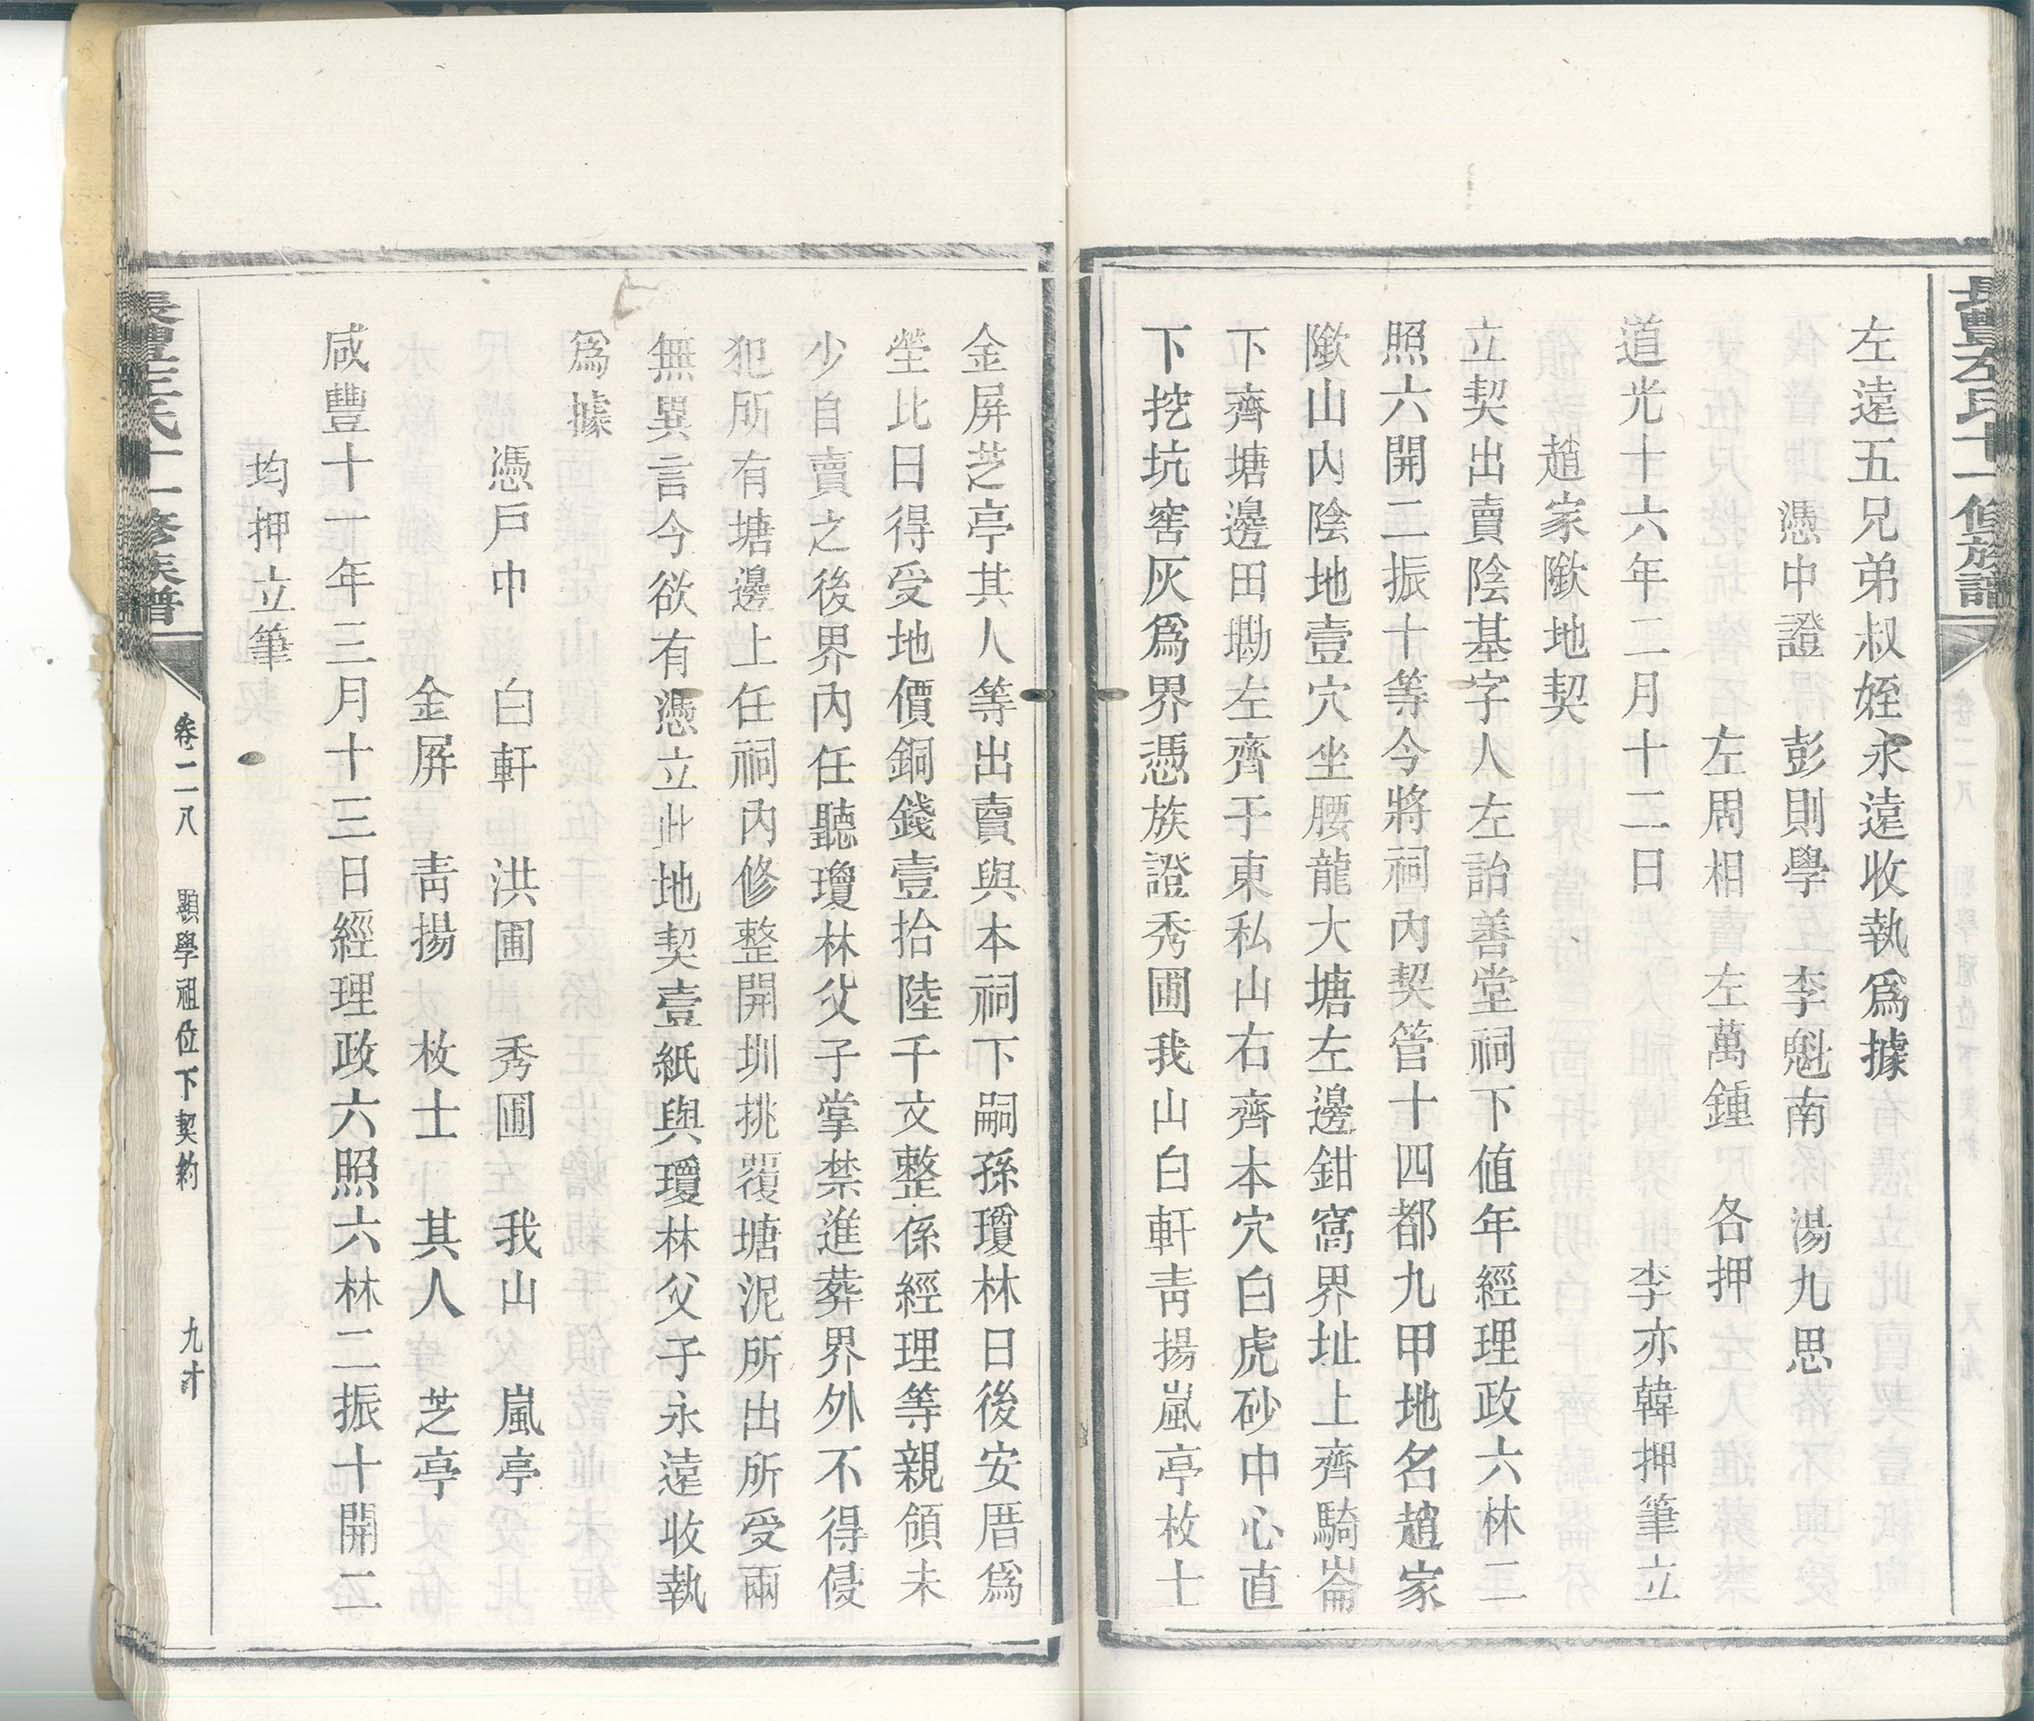 長豐左氏十一修族譜
左遠五兄弟叔姪永遠收執爲據
憑中證　彭則學　李魁南　湯九思
左周相　左萬鍾　各押
道光十六年二月十二日　李亦韓押筆立
趙家歘地契
立契出賣陰基字人左詒善堂祠下値年經理政六林二
照六開二振十等今將祠內契管十四都九甲地名趙家
歘山內陰地壹穴坐腰龍大塘左邊鉗窩界址上齊騎崙
下齊塘邊田墈左齊于東私山右齊本穴白虎砂中心直
下挖坑窖灰爲界憑族證秀圃我山白軒靑揚嵐亭枚士
金屏芝亭其人等出賣與本祠下嗣孫瓊林日後安厝爲
塋比日得受地價銅錢壹拾陸千文整係經理等親領未
少自賣之後界內任聽瓊林父子掌禁進葬界外不得侵
犯所有塘邊上任祠內修整開圳挑覆塘泥所出所受兩
無異言今欲有憑立此地契壹紙與瓊林父子永遠收執
爲據
憑戶中　白軒　洪圃　秀圃　我山　嵐亭
金屏　靑揚　枚士　其人　芝亭
咸豐十一年三月十三日經理政六照六林二振十開二
均押立筆
長豐左氏十一修族譜
卷二八　顯學祖位下契約　九